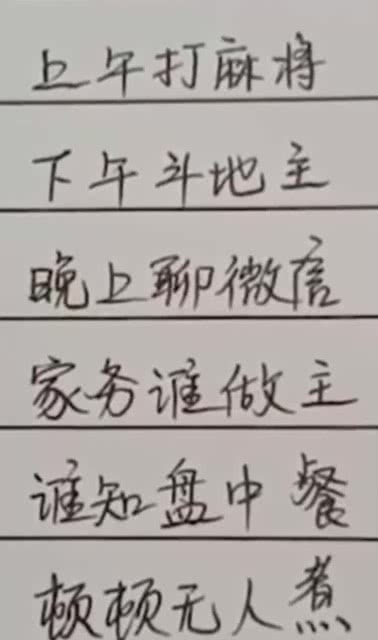 上午打麻将
下午斗地主
晚上聊微信
家务谁做主
谁知盘中餐
顿顿无人煮